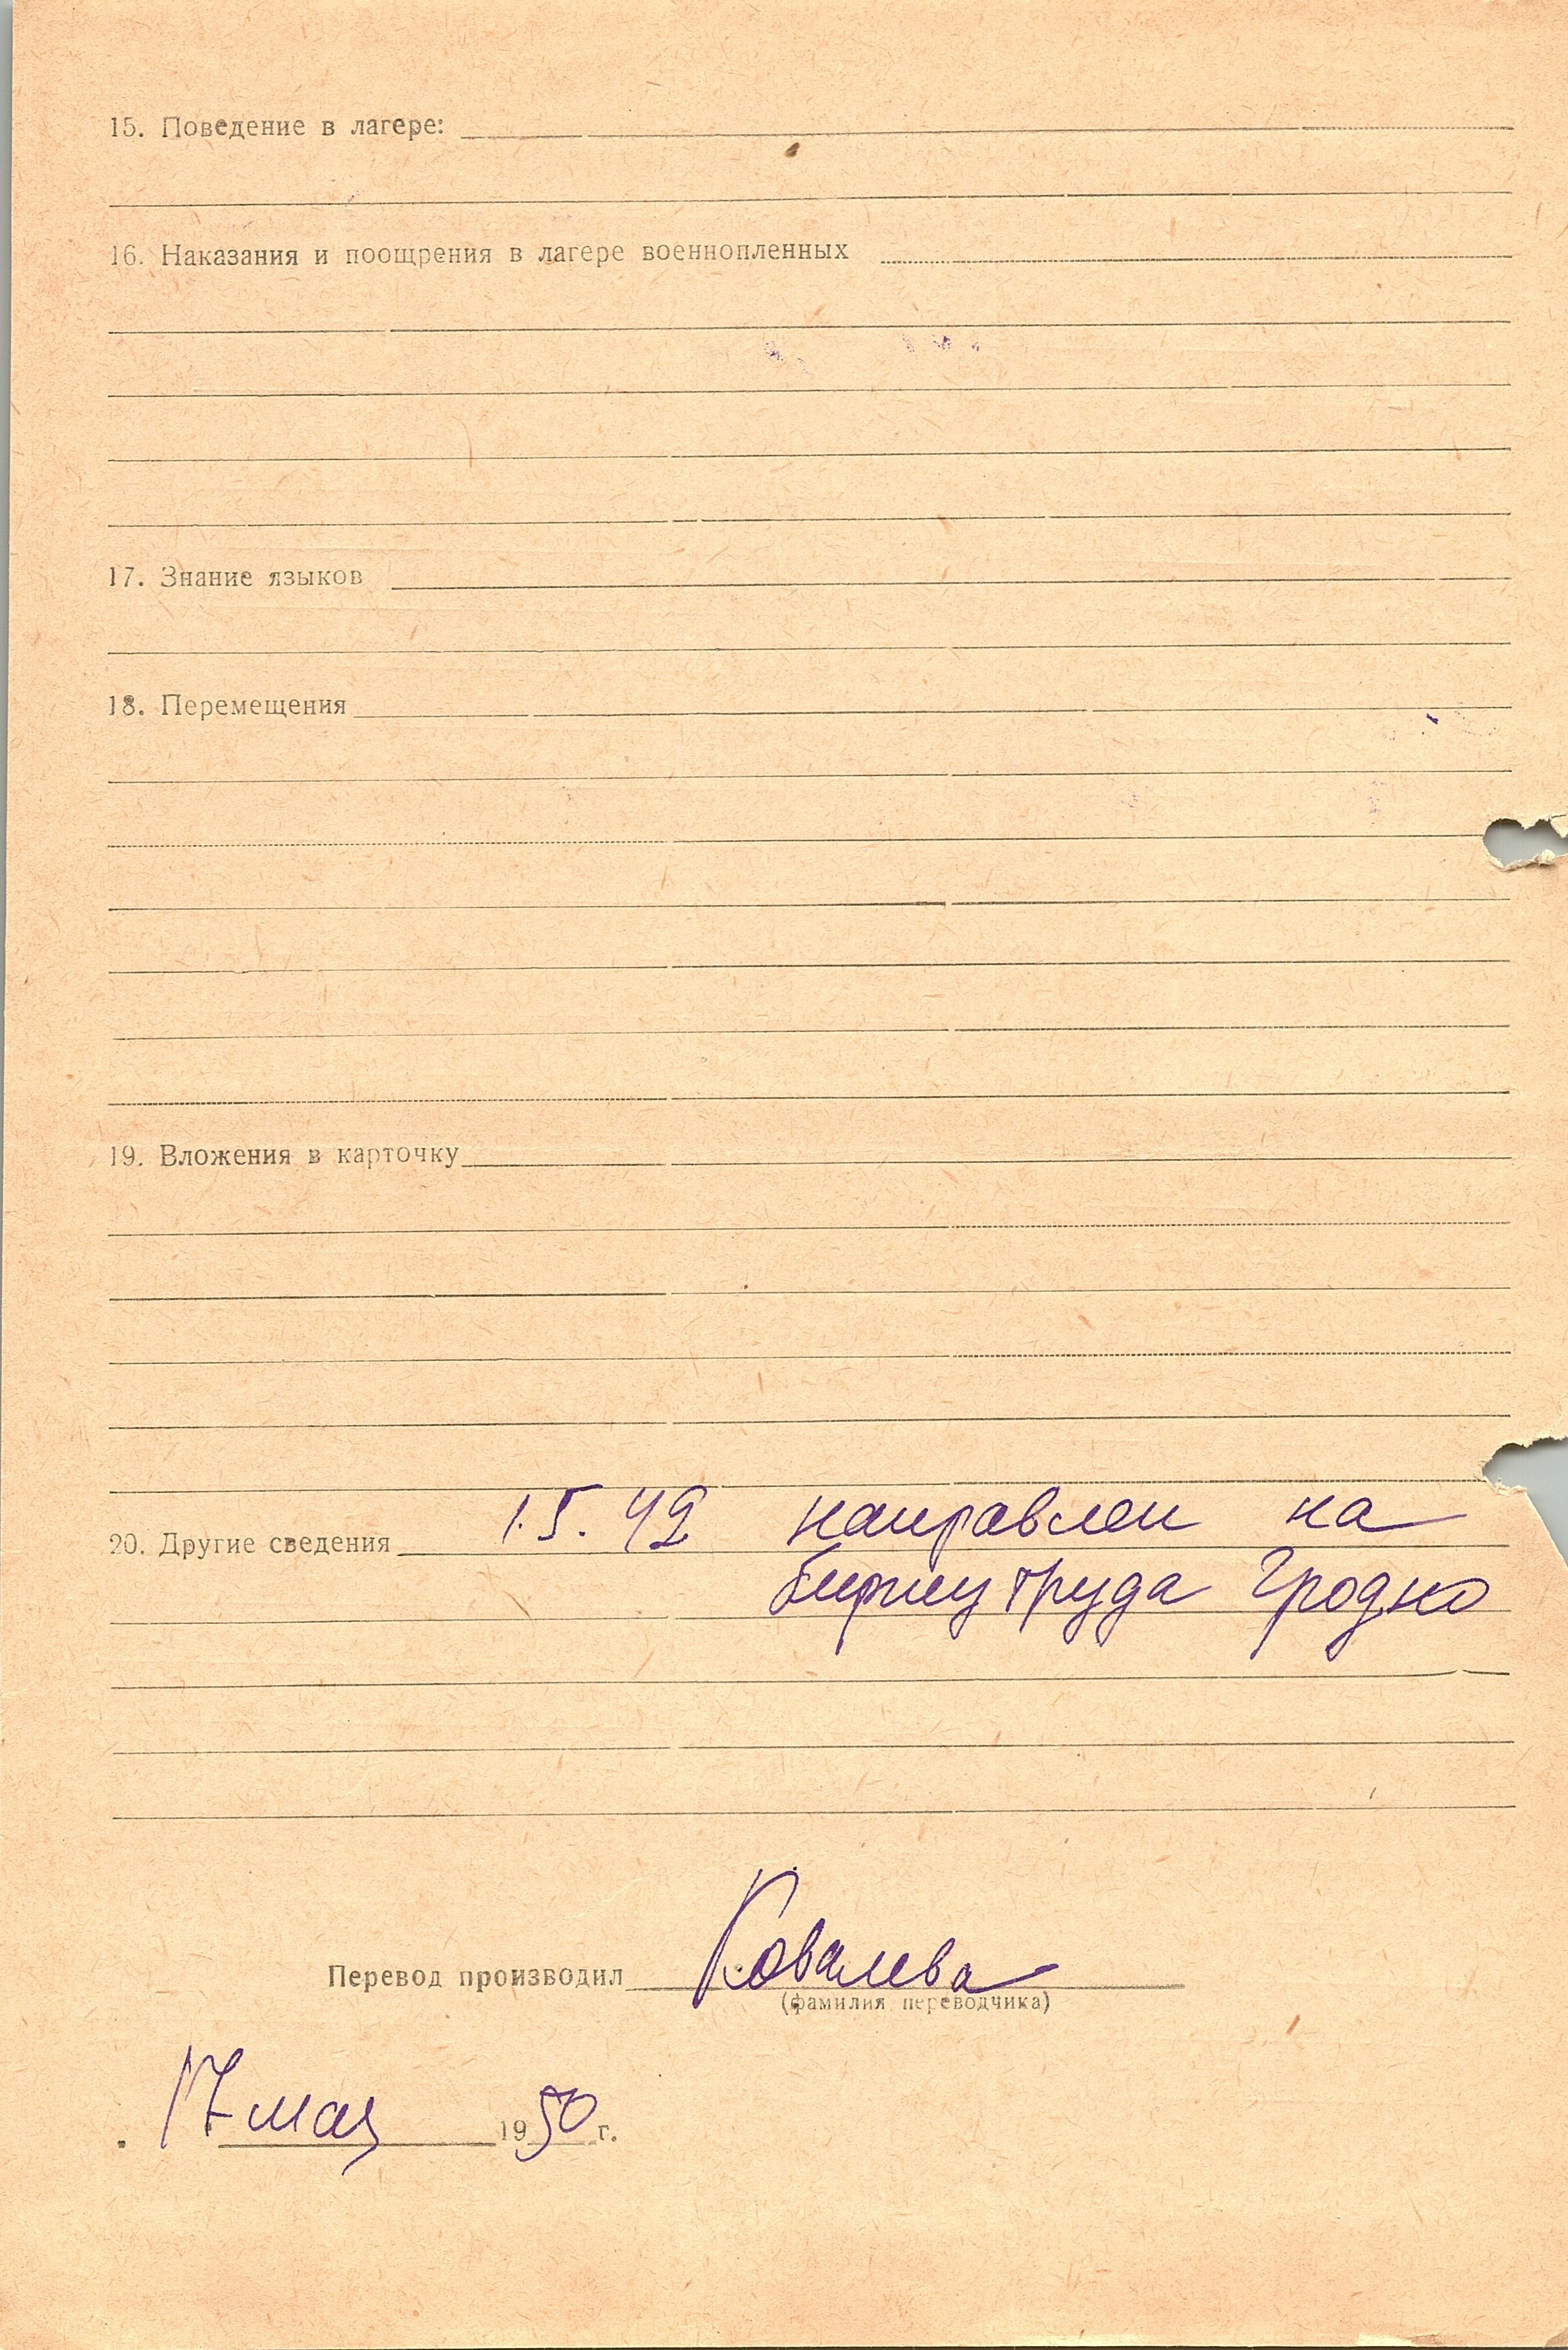 15. Поведение в лагере:
16. Наказания и поощрения в лагере военнопленных
17. Знание языков
18. Перемещения
19. Вложения в карточку
20. Другие сведения 1.5.42 направлен на
биржу труда Гродно
Перевод производил Ковалева
(фамилия переводчика)
17 мая 1950 г.